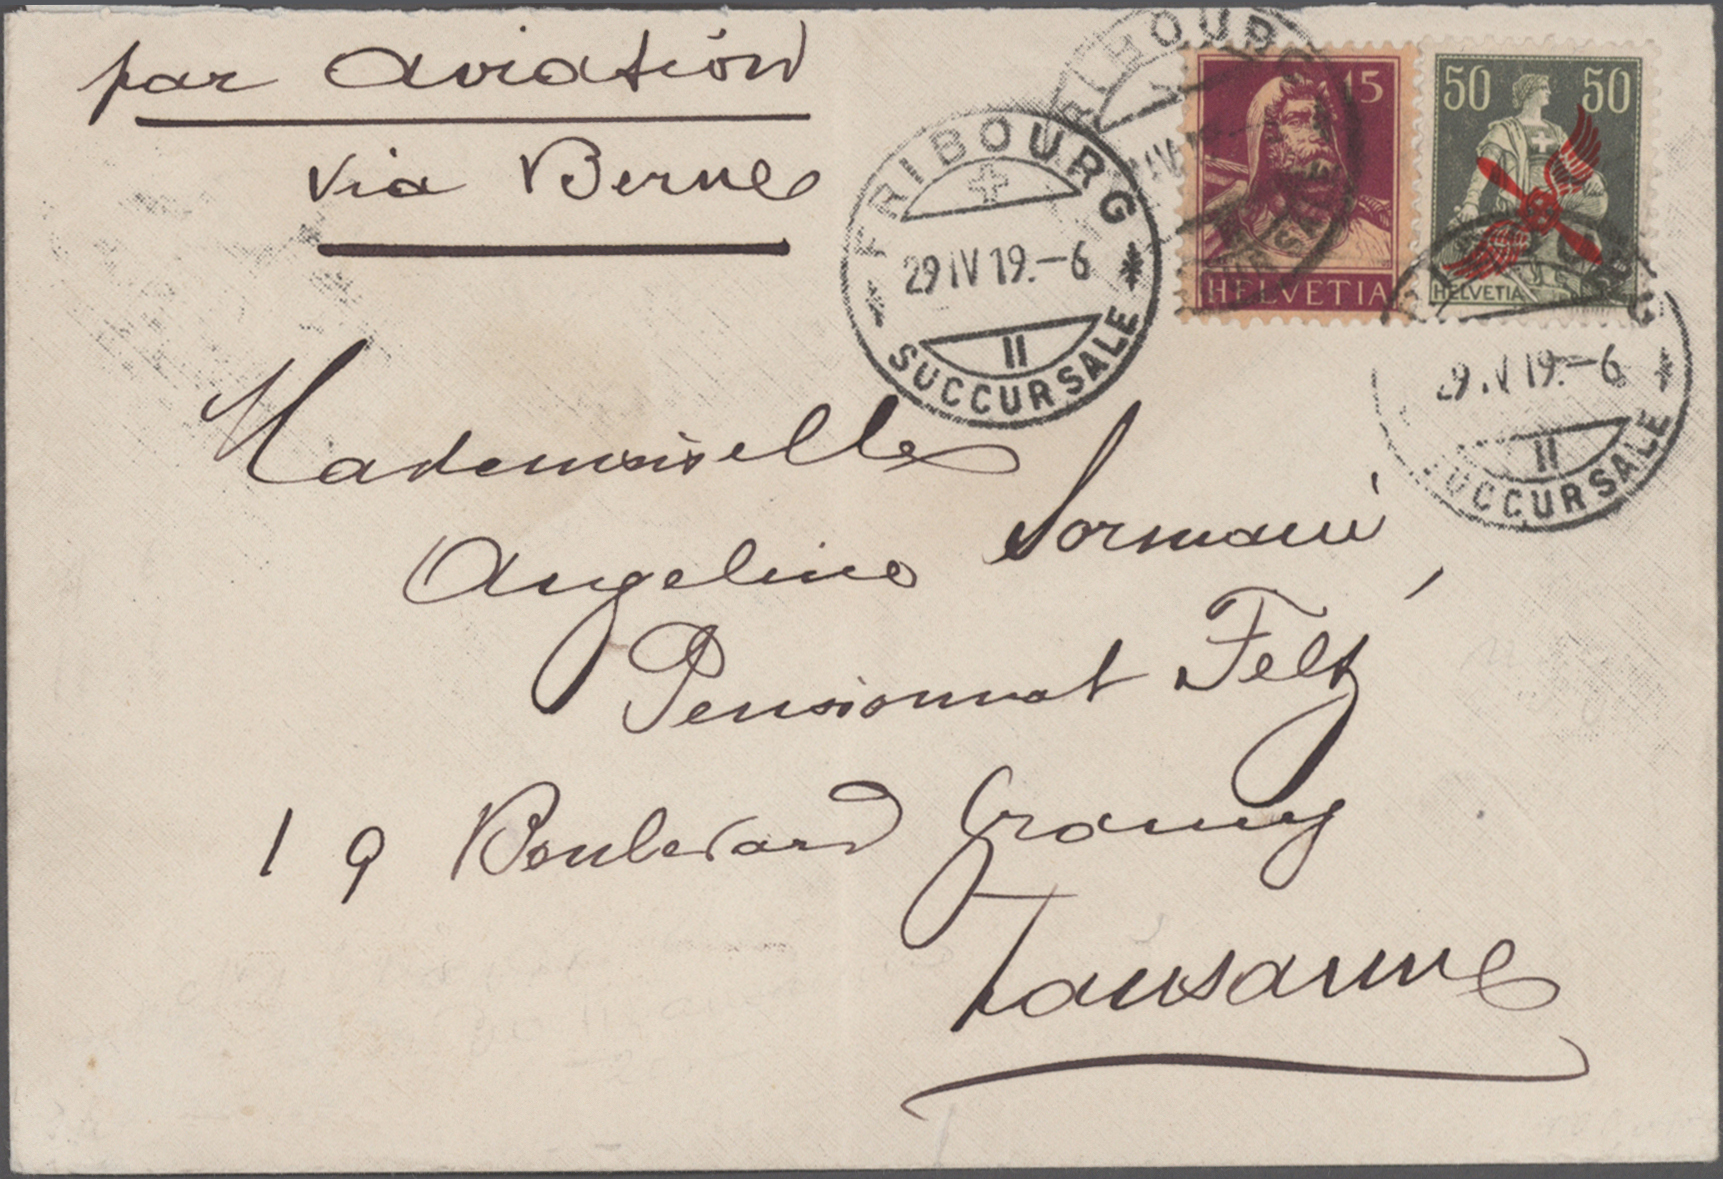 par aviation
via Berne
FRIBOURG
29 IV 19.-6
II
SUCCURSALE
15
HELVETIA
50 50
HELVETIA
29 IV 19.-6
II
SUCCURSALE
Mademoiselle
Angelina Sormani
Pensionnat Feltz
19 Boulevard Grancy
Lausanne